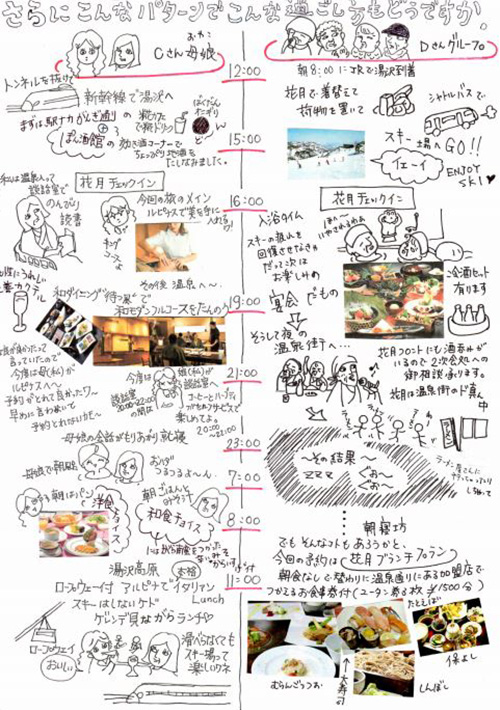 さらにこんなパターンでこんな過ごし方もどうですか。
Cさん母娘
おやこ
トンネルを抜けて
新幹線で湯沢へ
まずは駅ナカがんぎ通りの
糀カフェで糀ドリンク
ばくだんおにぎり
ぽん酒館の利き酒コーナーで
ちょっぴり地酒を
たしなみました。
私は温泉入って
談話室で
のんびり
読書
花月チェックイン
今回の旅のメイン
その後 温泉へ〜
和ダイニング“待つ夜”で
和モダンフルコースをたんのう
今度は母(私)が
ルピケスへ〜
予約がとれて良かったワ〜
早めに言わないと
予約とれないかも〜
今度は
娘(私)が
談話室へ
コーヒーとハーブティ
がセルフサービスで
楽しめてよ。
20:00〜22:00
母娘の会話がもりあがり就寝
母娘で朝風呂
お肌が
つるつるよ〜ん。
朝はパン
と洋食
チョイス
朝ごはんと
みそ汁
和食チョイス
湯沢高原
ロープウェイ付 アルピナでイタリアン
Lunch
スキーはしないケド
ゲレンデ見ながらランチ♡
ロープウェイ
おいしい
滑べらなくても
スキー場って
楽しいワネ
12:00
15:00
16:00
19:00
21:00
23:00
7:00
8:00
11:00
Dさんグループ
朝8:00にJRで湯沢到着
花月で着替えて
荷物を置いて
シャトルバスで
スキー場へGO!!
イェーイ
ENJOY
SKI♥
花月チェックイン
入浴タイム
スキーの疲れを
回復させなきゃ
だって次は
お楽しみの
宴会だもの
冷酒セット
有ります
そうして夜の
温泉街へ…
花月フロントにも酒呑みが
いるので2次会処への
御相談承ります。
花月は温泉街のド真ん中
ラーメン屋さんに
〜その結果〜
ZZZZ
ぐぉー
ぐぉー
朝寝坊
でもそんなコトもあろうかと、
今回の予約は花月ブランチプラン
朝食なしで替わりに温泉通りにある加盟店で
つかえるお食事券付(ユータン券3枚 ¥1500分)
たとえば
むらんごっつぉ
大寿司
しんばし
保よし